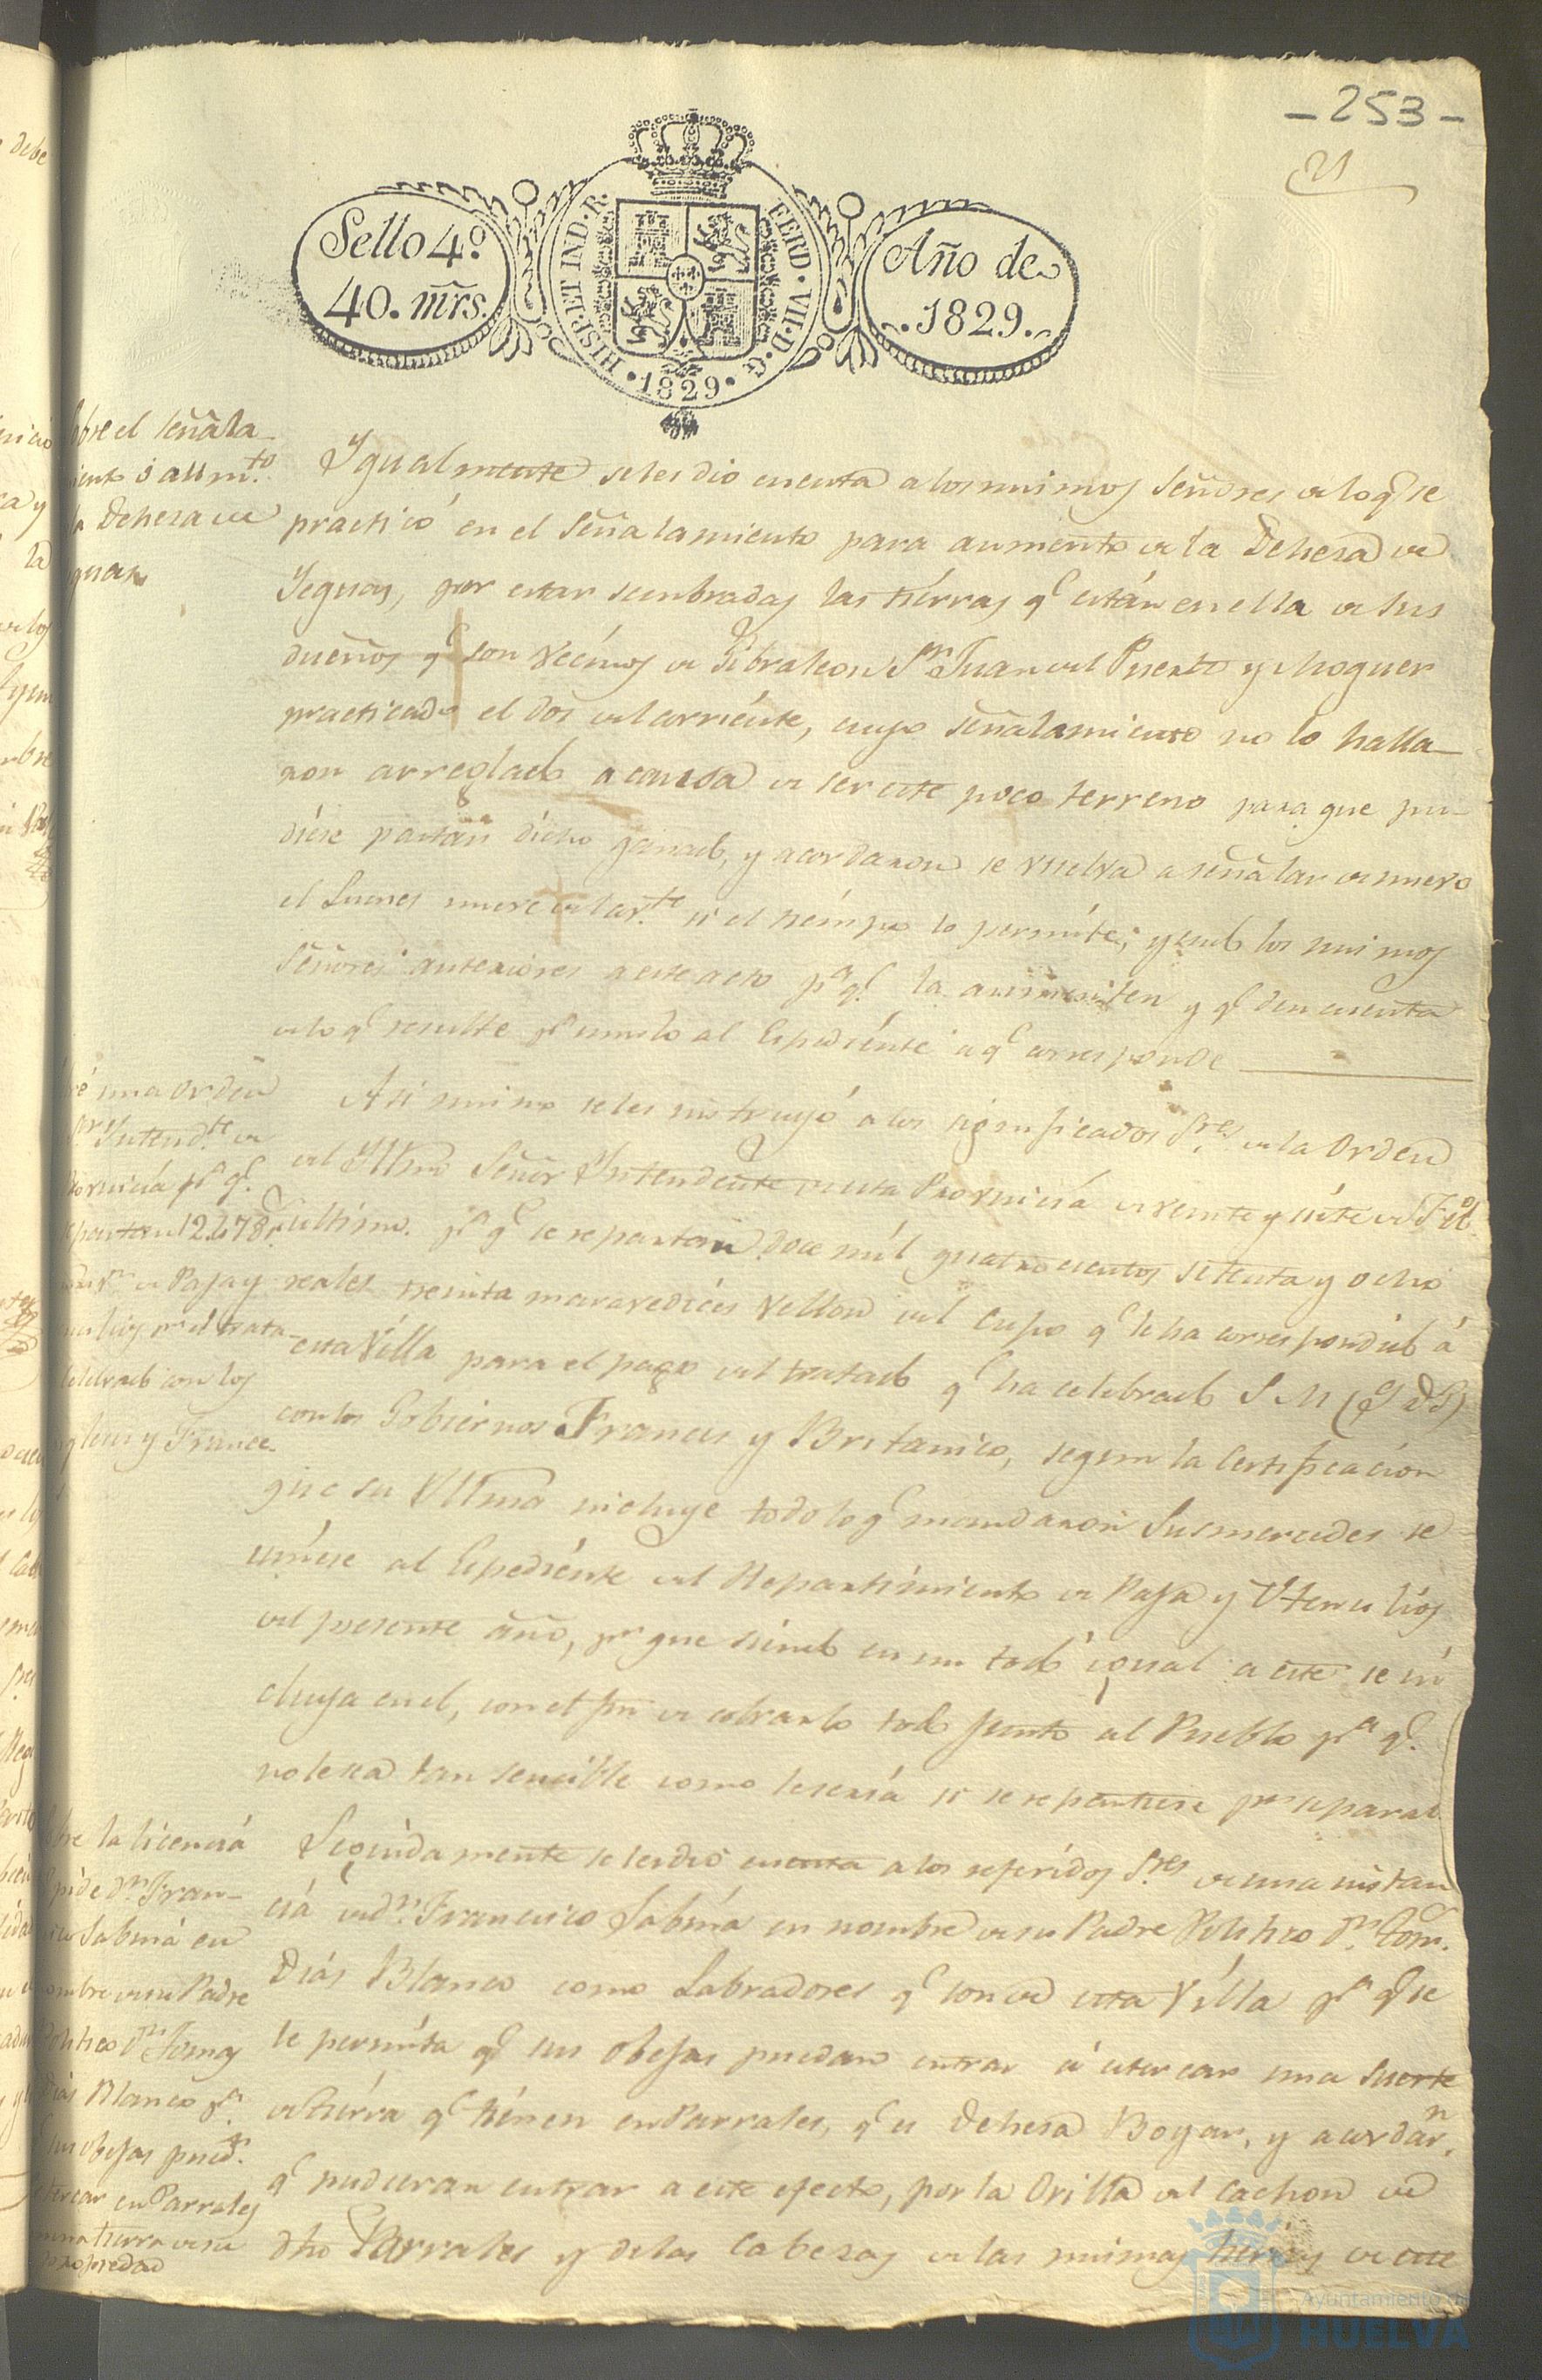 - 253 -
Sello 4º.
40. mrs.
HISP. ET IND. R.
FERD. VII. D. G.
• 1829 •
Año de
1829.
obre el señala
iento ó aum.to
la Dehesa de
guas
Ygualmente seles dio cuenta alos mismos Señores de lo q.e se
practicó en el Señalamiento para aumento de la Dehesa de
Yeguas, por estar sembradas las tierras q.e están en ella de sus
dueños q.e son vecinos de Gibraleon S.n Juan del Puerto y Moguer
practicado el dos del corriente, cuyo señalamiento no lo halla-
ron arreglado a causa de ser este poco terreno para que pu-
diese pastar dicho ganado, y acordaron se vuelva a señalar de nuevo
el Lunes nueve del cor.te si el tiempo lo permite; yendo los mismos
Señores anteriores a este acto p.a q.e la aumenten y q.e den cuenta
de lo q.e resulte p.a unirlo al Espediente a q.e corresponde
ré una orden
S.or Intend.te de
Provincia p.a q.e
repartan 12.478 r.
de Paja y
utencilios p.a el trata-
celebrado con los
gleses y France-
Asi mismo se les instruyó a los significados S.res de la Orden
del Yltmo Señor Yntendente de esta Provincia de veinte y siete de Feb.o
ultimo. p.a q.e se repartan doce mil quatrocientos setenta y ocho
reales treinta maravedices vellon del cupo q.e le ha correspondido á
esta Villa para el pago del tratado q.e ha celebrado S M (q D G)
con los Gobiernos Frances y Britanico, segun la Certificacion
que su Yltma incluye todo lo q.e mandaron Sus mercedes se
uniese al Espediente del Repartimiento de Paja y Utencilios
del presente año, p.a que siendo en un todo igual a este se in
cluya en el, con el fin de cobrarlo todo junto al Pueblo p.a q.e
no le sea tan sencible como le sería si se repartiese por separado
bre la licencia
pide D.n Fran-
co Sabina en
ombre de su Padre
Politico D.n Tomas
Dias Blanco p.a
sus obejas pued.n
estercar en Parrales
una tierra de su
propiedad
Segundamente se les dió cuenta a los referidos S.res de una instan
cia de D.n Francisco Sabina en nombre de su Padre Politico D.n Tom.
Dias Blanco como Labradores q.e son de esta Villa p.a q.e se
le permita q.e sus obejas puedan entrar á estercar una Suerte
de tierra q.e tienen en Parrales, q.e es Dehesa Boyar, y acordar.n
q.e pudieran entrar a este efecto, por la Orilla del Cachon de
dho Parrales y de las Cabezas de las mismas tierras de este
Ayuntamiento de
HUELVA